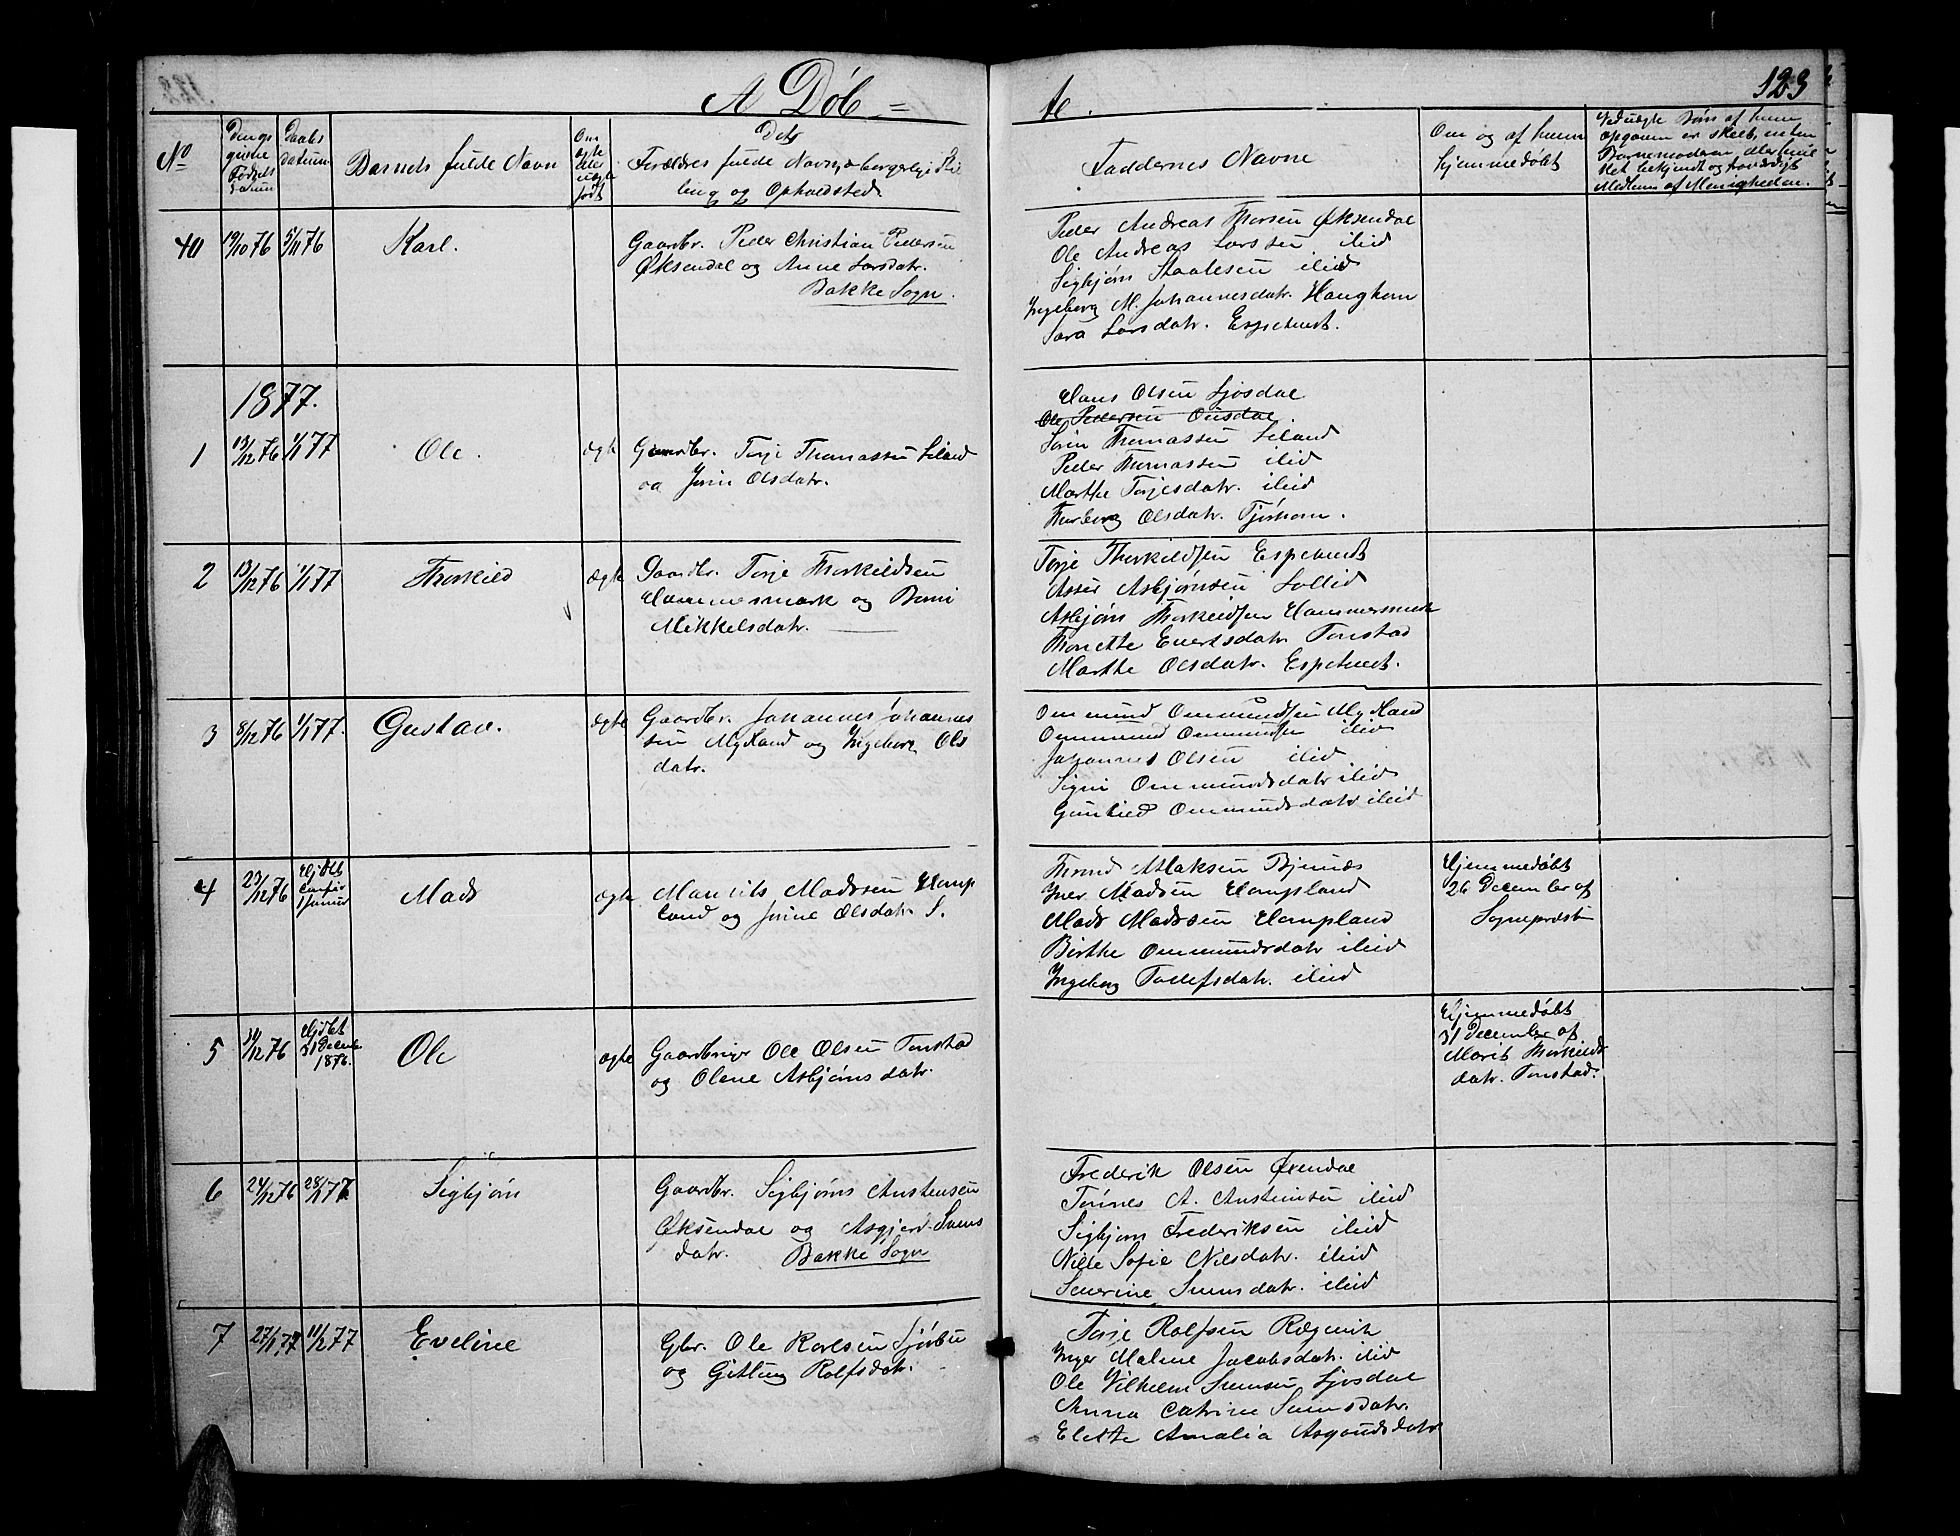 A Døb = te.
123
No
Opgivne Fødsels datum
Daabs datum
Barnets fulde Navn
Om ægte eller uægte født
Dets Forældres fulde Navn, borgerlige Stilling og Opholdsted.
Faddernes Navne
Om og af hvem hjemmedøbt
40 19/10 76 5/11 76 Karl.
Gaardbr. Peder Christian Pedersen
Øksendal og Anne Larsdatr.
Bakke Sogn.
Peder Andreas Thorsen Øksendal
Ole Andreas Larssen ibid
Sigbjørn Staalesen ibid
Ingeborg M. Johannesdatr. Haughom
Sara Larsdatr. Espetvedt.
1877.
1 13/12 76 1/1 77 Ole. ægte
Gaardbr. Torje Thomassen Liland
og Jorin Olsdatr.
Hans Olsen Sjosdal
Ole Pedersen Ousdal
Sorin Thomassen Liland
Peder Thomassen ibid
Marthe Torjesdatr. ibid
Thorborg Olsdatr. Tjørhom.
2 13/12 76 1/1 77 Thorkild ægte
Gaardbr. Torje Thorkildsen
Hammersmark og Berni
Mikkelsdatr.
Torje Thorkildsen Espetvedt
Asser Asbjørnsen Sollid
Asbjørn Thorkildsen Hammersmark
Thonette Evertsdatr. Tonstad
Marthe Olsdatr. Espetvedt.
3 8/12 76 1/1 77. Gustav. ægte
Gaardbr. Johannes Johannes
sen Mydland og Ingeborg Ols
datr.
Ommund Ommundsen Mydland
Ommund Ommundsen ibid
Johannes Olsen ibid
Signi Ommundsdatr ibid
Gunhild Ommundsdatr ibid
4 23/12 76 Hjdbt
Mads ægte
Maurits Madssen Homp
land og Jorine Olsdatr S.
Trond Aslaksen Bjunes
Iver Madsen Hompland
Mads Madssen Hompland
Birthe Ommundsdatr ibid
Ingeborg Tollefsdatr. ibid
Hjemmedøbt
26 December af
Sognepræst
5 14/12 76 Hjdbt
31 Decembr
1876. Ole ægte
Gaardbruger Ole Olsen Tonstad
og Olene Asbjørnsdatr.
Hjemmedøbt
31 December af
Marit Thorkilds
datr. Tonstad.
6 24/12 76 28/1 77 Sigbjørn
Gaardbr. Sigbjørn Austensen
Øksendal og Asgjerd Svens
datr. Bakke Sogn
Frederik Olsen Øxendal
Tønnes A. Austensen ibid
Sigbjørn Frederiksen ibid
Nille Sofie Nilsdatr. ibid
Severine Svensdatr. ibid
7 27/1 77 11/2 77 Eveline
Gbr. Ole Karlsen Sjørbu
og Gitlaug Rolfsdatr.
Torje Rolfsen Rægevik
Inger Malene Jacobsdatr. ibid
Ole Vilhelm Svensen Sjosdal
Anna Catrine Svensdatr.
Elette Amalia Asgoudsdatr